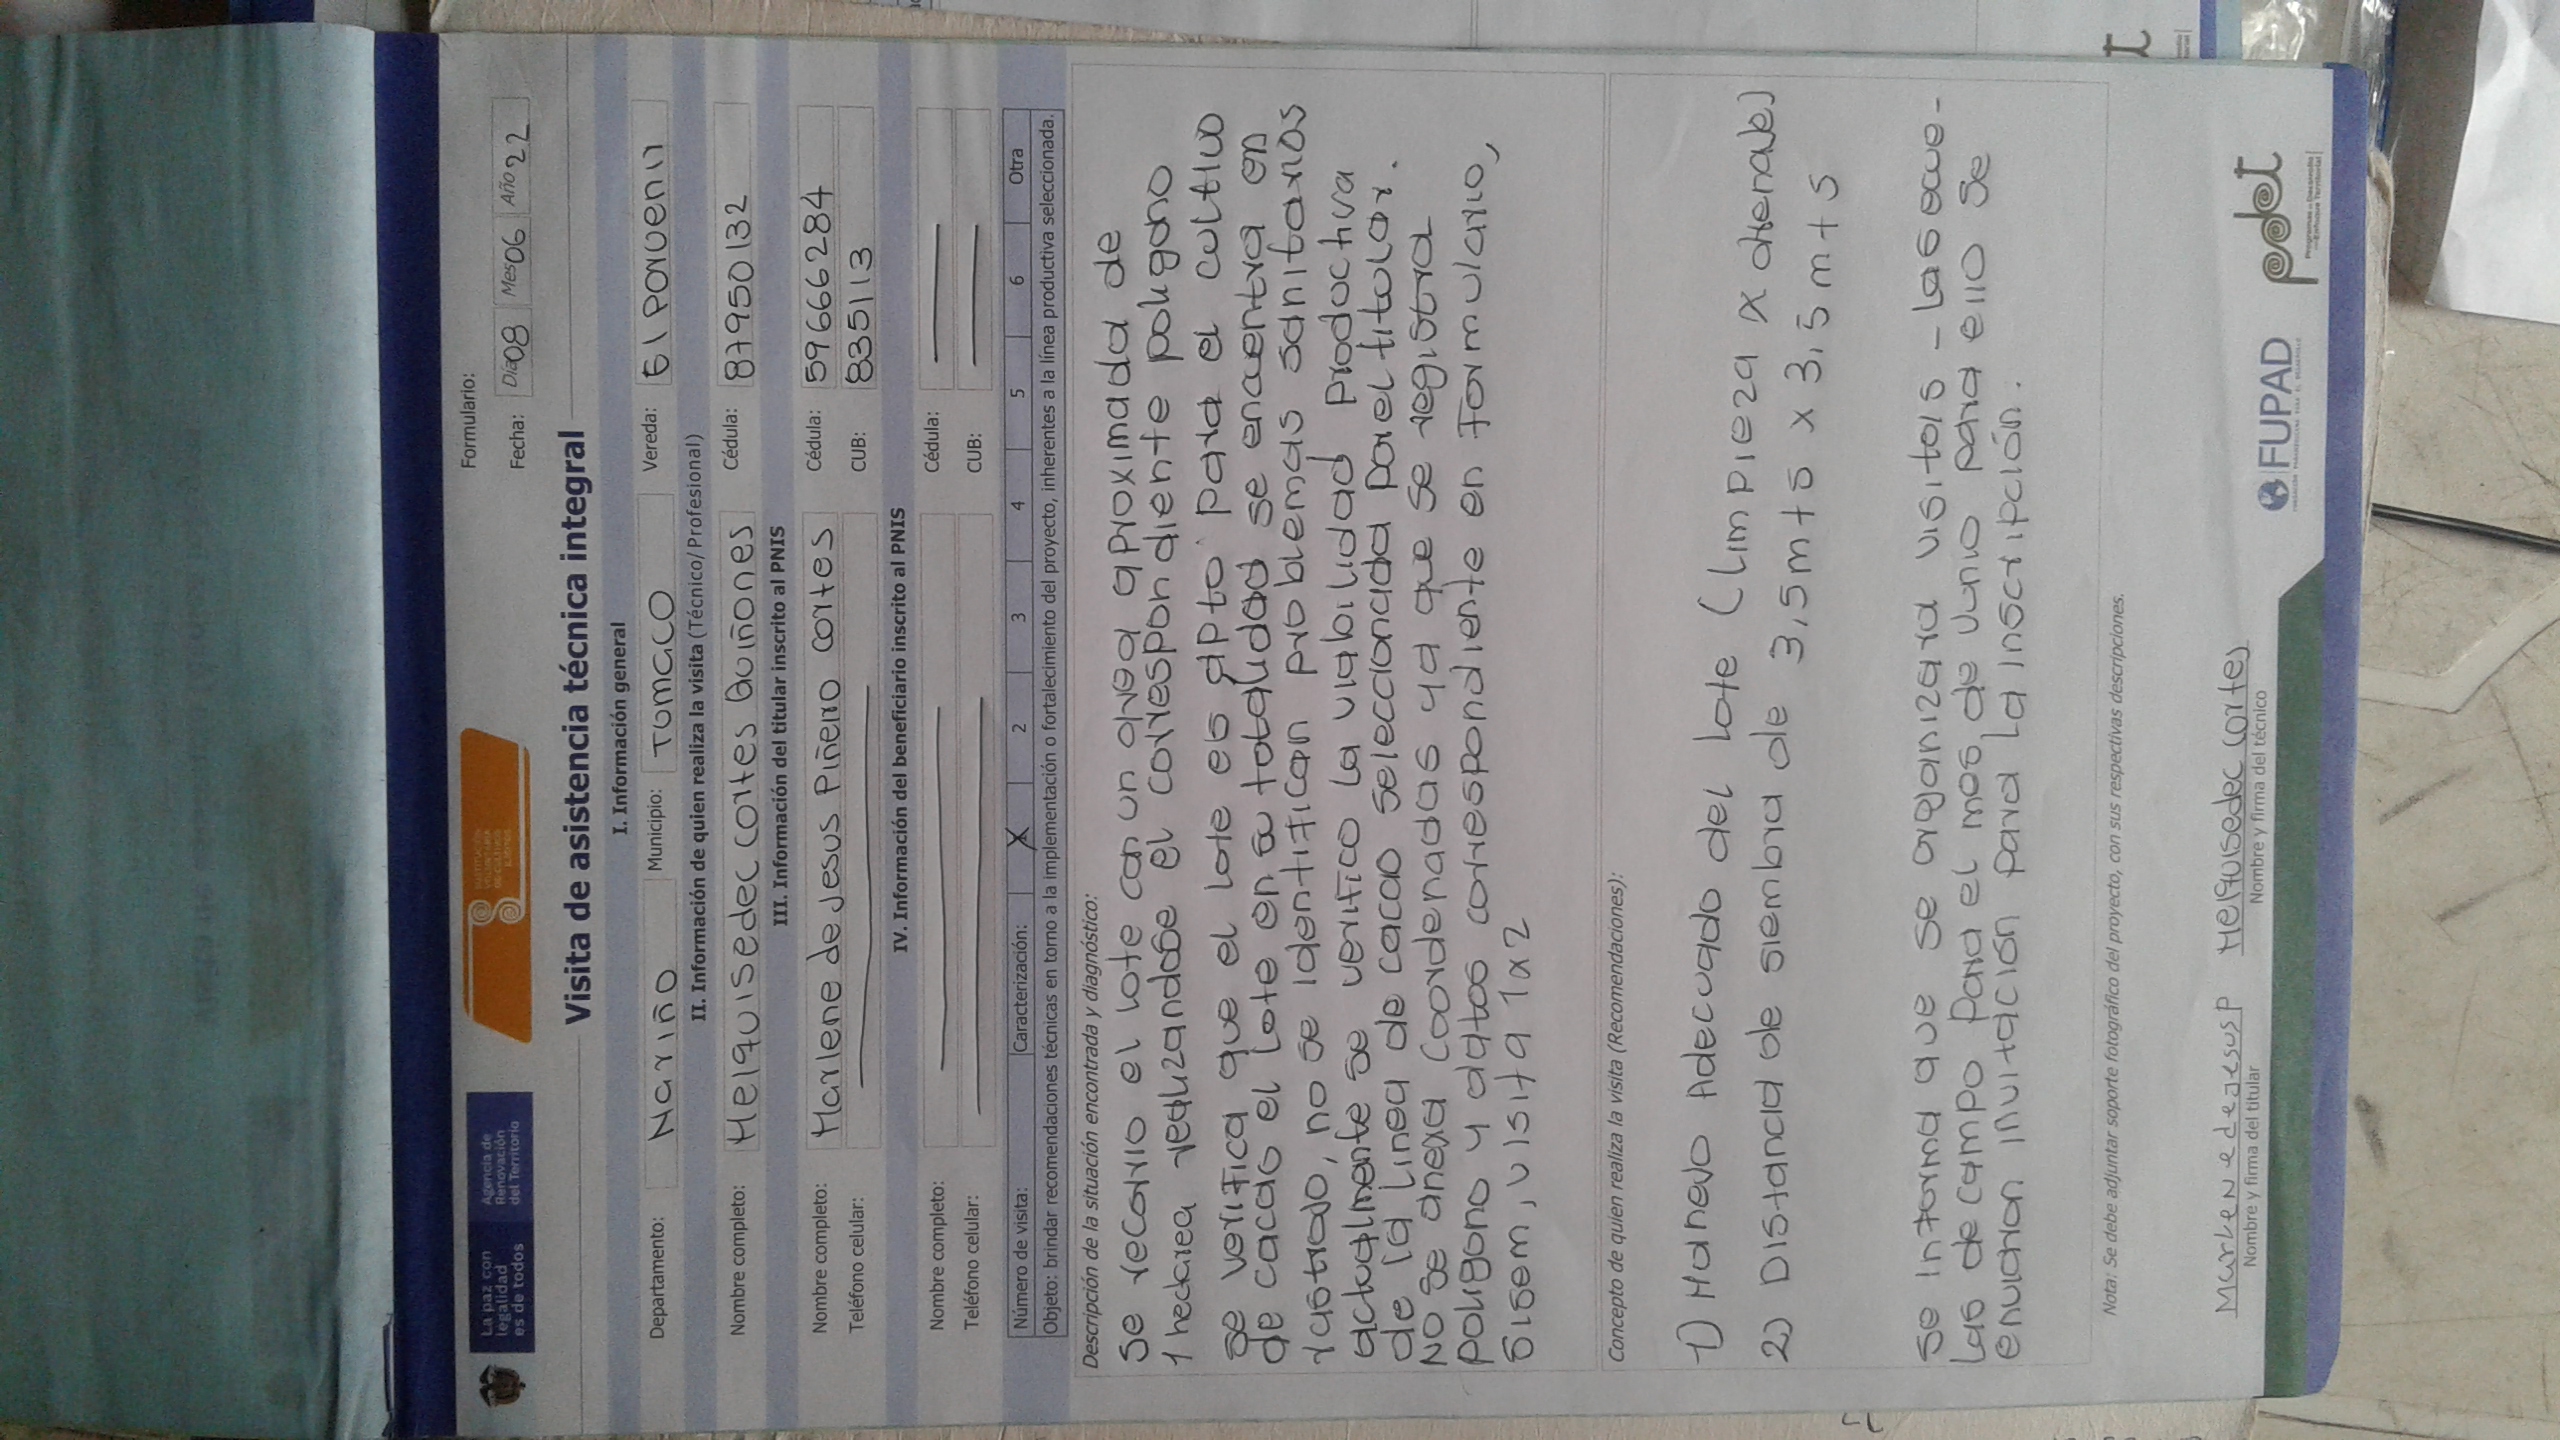 La paz con legalidad es de todos
Agencia de Renovación del Territorio
SUSTITUCIÓN VOLUNTARIA DE CULTIVOS ILÍCITOS
Formulario:
Fecha: Día 08 Mes 06 Año 22
Visita de asistencia técnica integral
I. Información general
Departamento: Nariño Municipio: Tumaco Vereda: El Porvenir
II. Información de quien realiza la visita (Técnico/Profesional)
Nombre completo: Melquisedec Cortes Quiñones Cédula: 87950132
III. Información del titular inscrito al PNIS
Nombre completo: Marlene de Jesus Piñeiro Cortes Cédula: 59666284
Teléfono celular: CUB: 835113
IV. Información del beneficiario inscrito al PNIS
Nombre completo: Cédula:
Teléfono celular: CUB:
Número de visita: Caracterización: X 2 3 4 5 6 Otra
Objeto: brindar recomendaciones técnicas en torno a la implementación o fortalecimiento del proyecto, inherentes a la línea productiva seleccionada.
Descripción de la situación encontrada y diagnóstico:
Se recorrio el lote con un area aproximada de
1 hectarea realizandose el correspondiente poligono
se verifica que el lote es apto para el cultivo
de cacao el lote en su totalidad se encuentra en
rastrojo, no se identifican problemas sanitarios
actualmente se verifico la viabilidad productiva
de la linea de cacao seleccionada por el titular.
No se anexa coordenadas ya que se registra
poligono y datos correspondiente en Formulario,
Sisem, visita 1x2
Concepto de quien realiza la visita (Recomendaciones):
1) Manejo Adecuado del lote (Limpieza x drenaje)
2) Distancia de siembra de 3,5mts x 3,5mts
Se informa que se organizara visitas - las ecue-
las de campo para el mes de Junio para ello se
enviaran invitación para la inscripción.
Nota: Se debe adjuntar soporte fotográfico del proyecto, con sus respectivas descripciones.
Marlene de jesus P Melquisedec Cortes
Nombre y firma del titular Nombre y firma del técnico
FUPAD
pdet